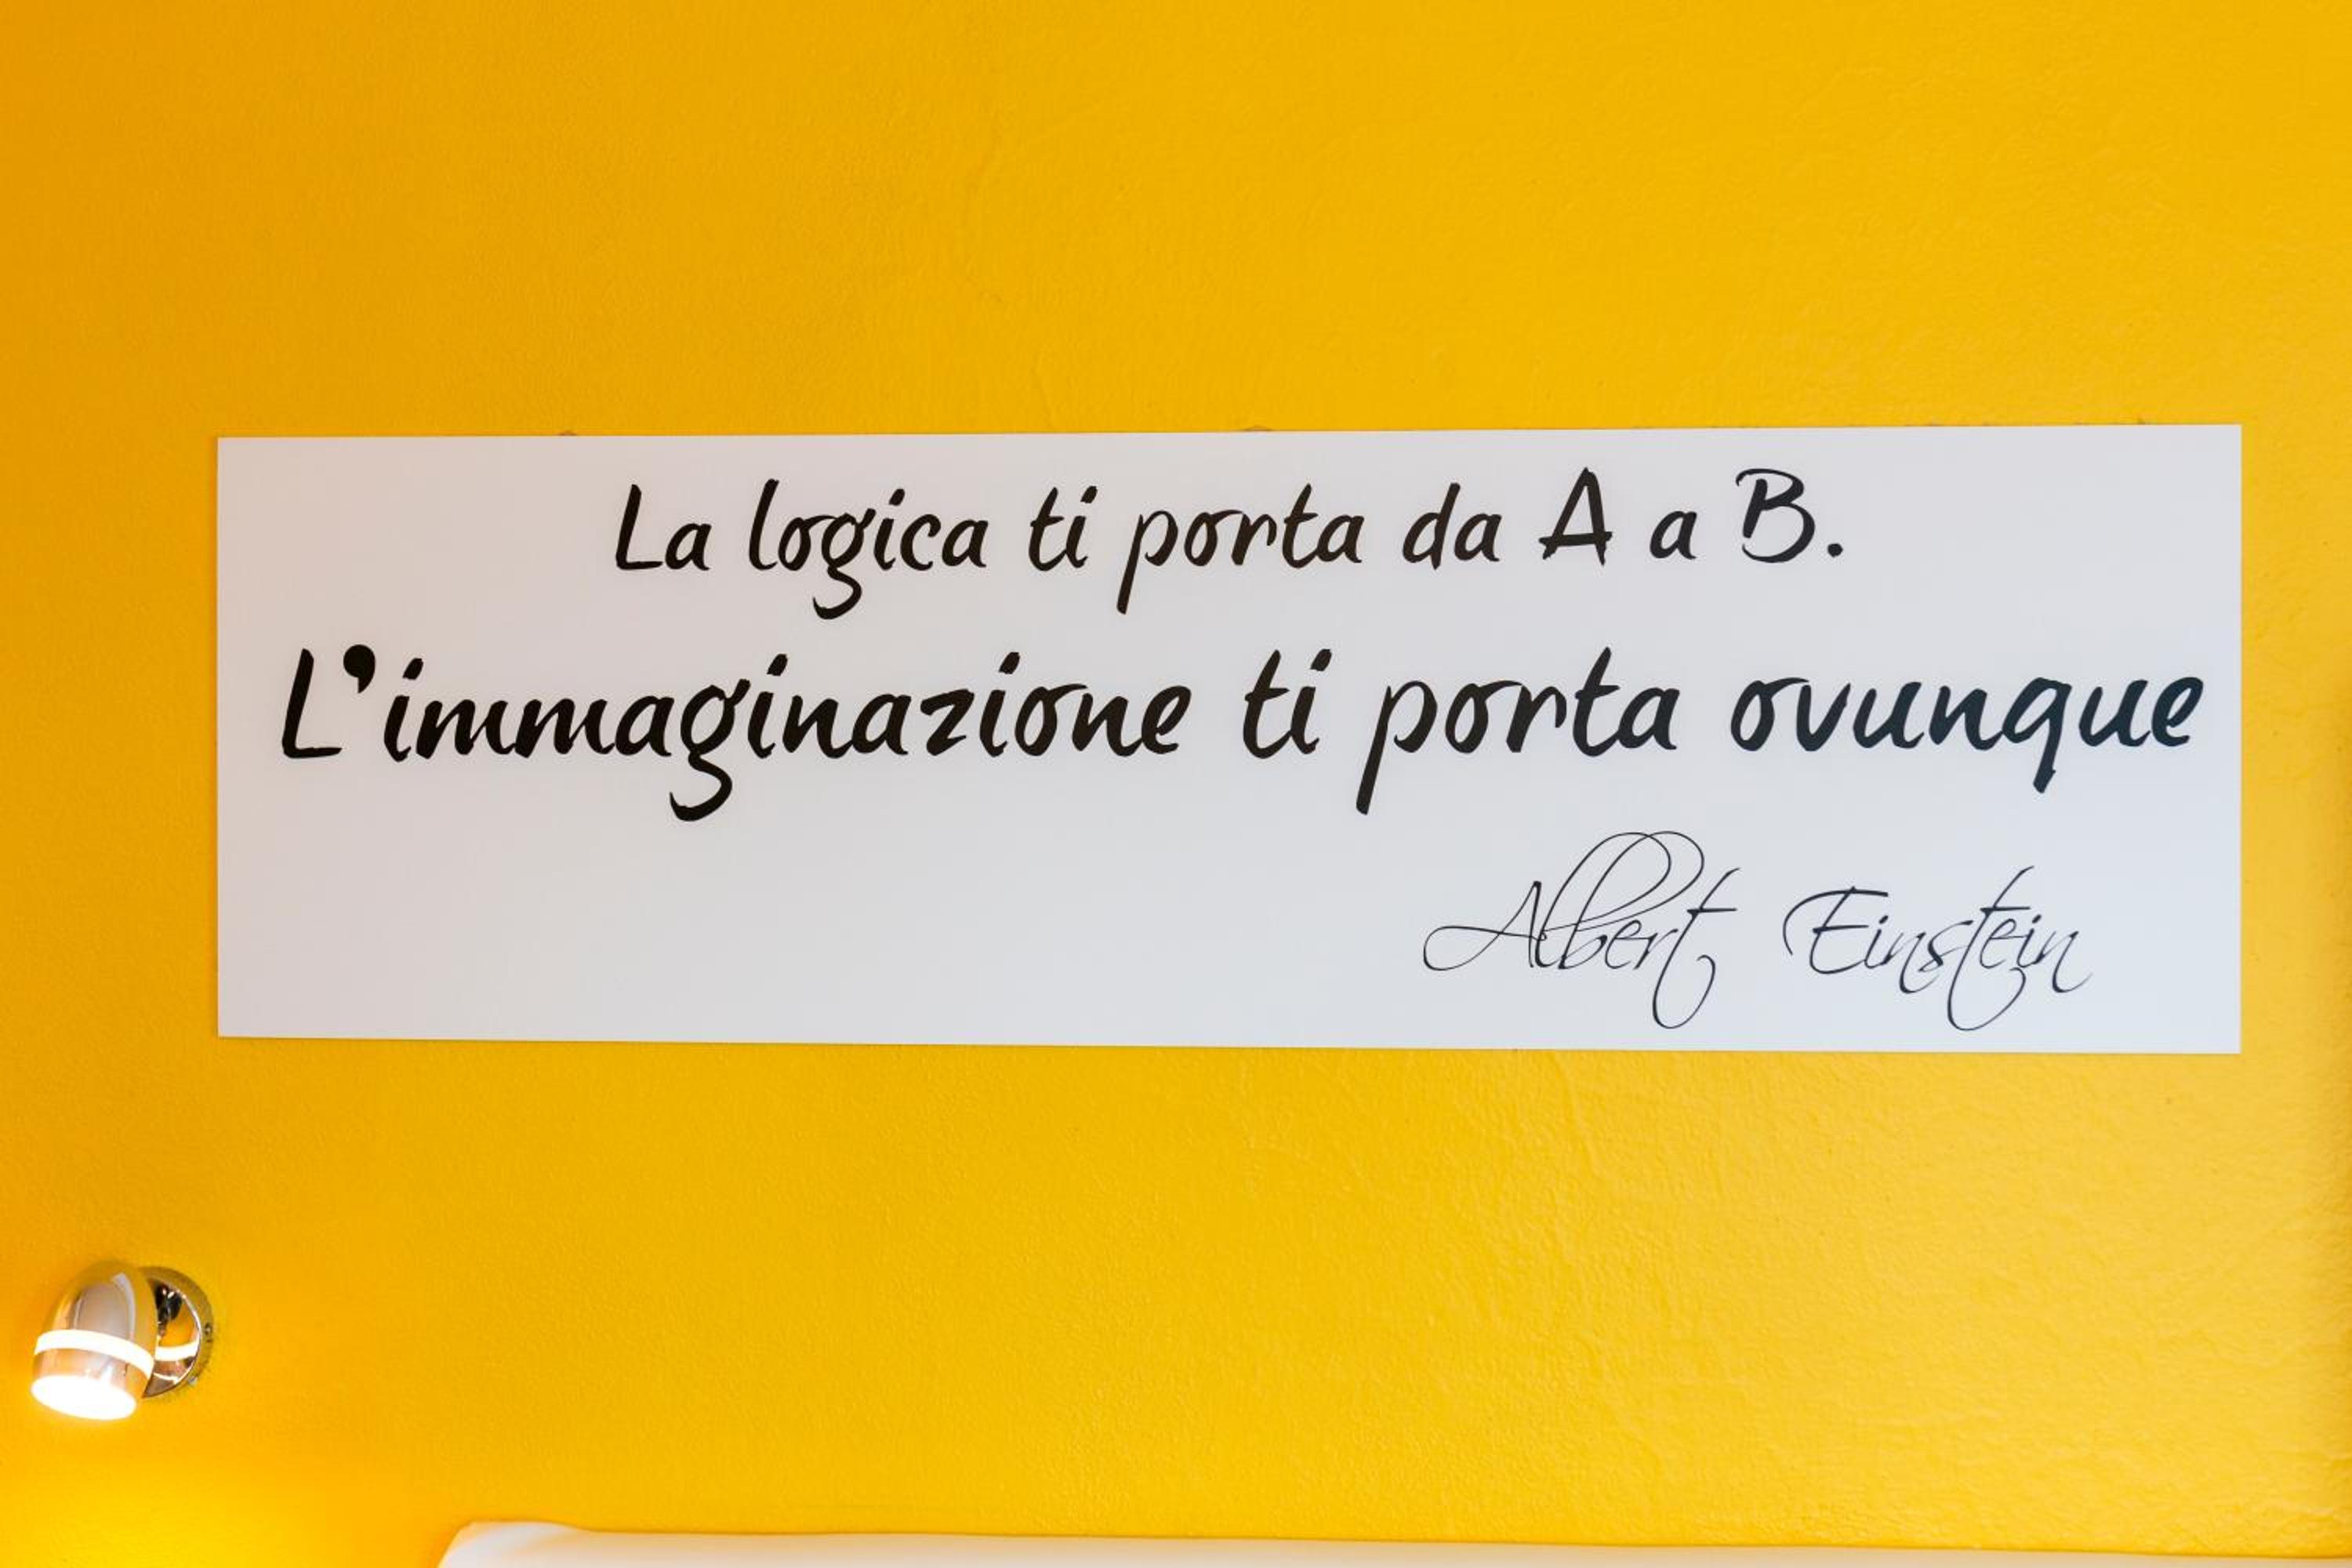 La logica ti porta da A a B.
L'immaginazione ti porta ovunque
Albert Einstein